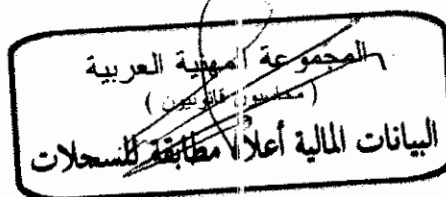 المجموعة المهنية العربية
( محاسبون قانونيون )
البيانات المالية أعلاه مطابقة للسجلات